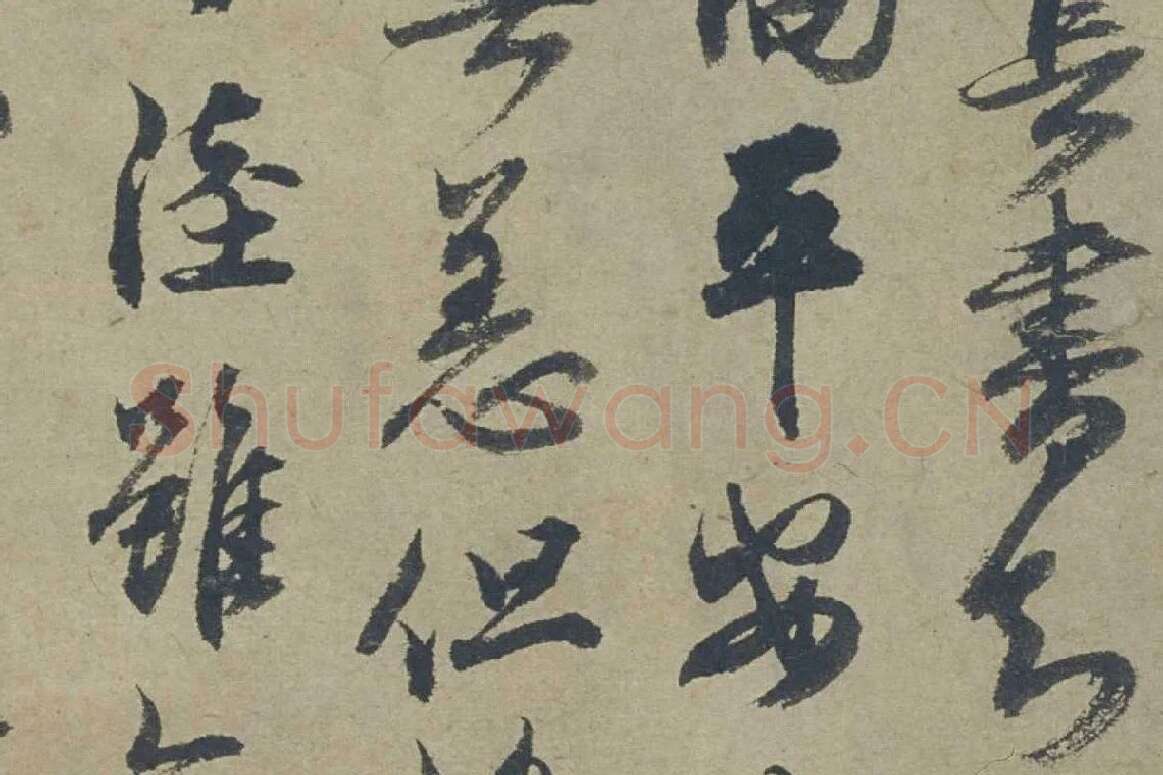 書知
平安
恙但
隆雖
Shufawang.CN